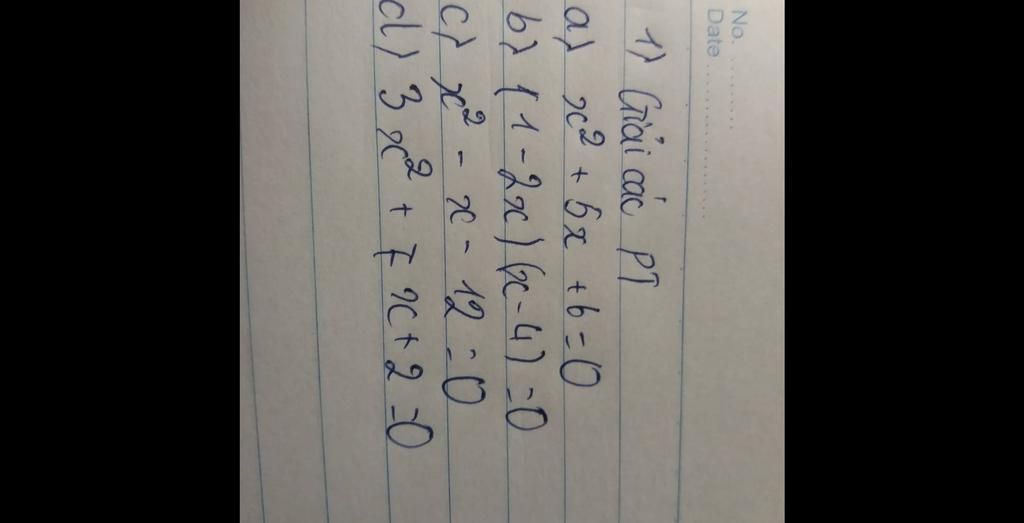 No. ..........
Date ....................
1) Giải các PT
a) x² + 5x + 6 = 0
b) (1 - 2x)(x - 4) = 0
c) x² - x - 12 = 0
d) 3x² + 7x + 2 = 0